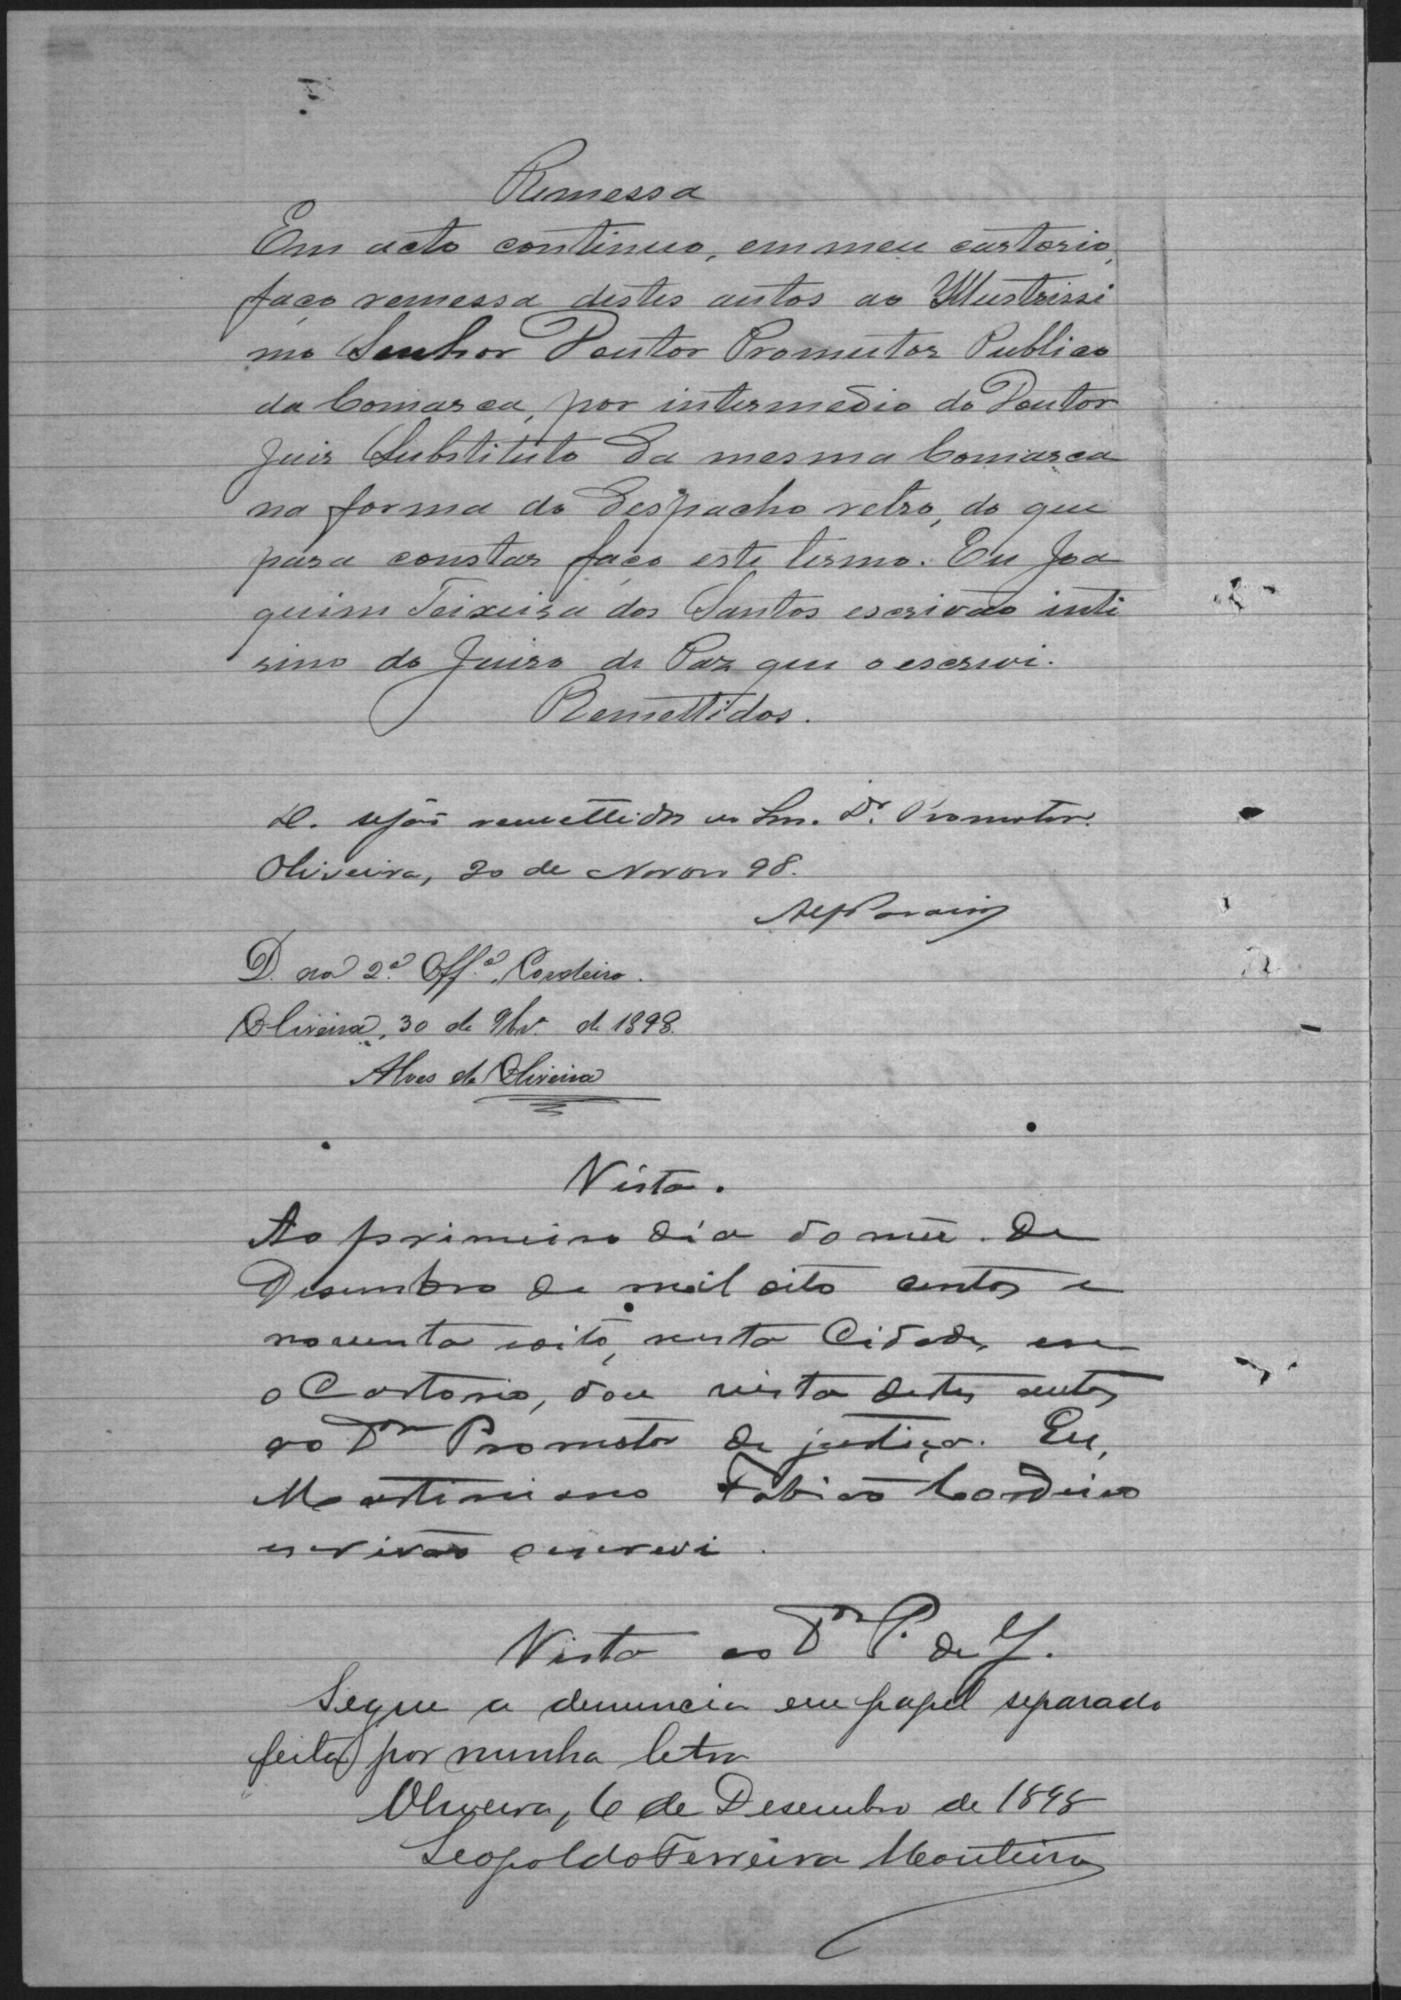 Remessa
Em acto continuo, em meu cartorio,
faço remessa destes autos ao Illustrissi
mo Senhor Doutor Promutor Publico
da Comarca, por intermedio do Doutor
Juis Substituto da mesma Comarca
na forma do despacho retro, do que
para constar faço este termo. Eu Joa
quim Teixeira dos Santos escrivão inte
rino do Juiso de Paz que o escrevi.
Remettidos.
sejão remettidos ao Snr. Dr. Promotor.
Oliveira, 30 de Novbr 98.
D. ao 2º Offº. Cordeiro.
Oliveira, 30 de 9br. de 1898.
Alves de Oliveira
Vista.
Ao primeiro dia do mez de
Desembro de mil oito centos e
noventa e oito, nesta Cidade, em
o Cartorio, dou vista destes autos
ao Dr Promotor de justiça. Eu,
Martiniano Fabião Cordeiro
escrivão escrevi.
Vista ao Dr P. de J.
Segue a denuncia em papel separado
feita por minha letra
Oliveira, 6 de Desembro de 1898
Leopoldo Ferreira Monteiro